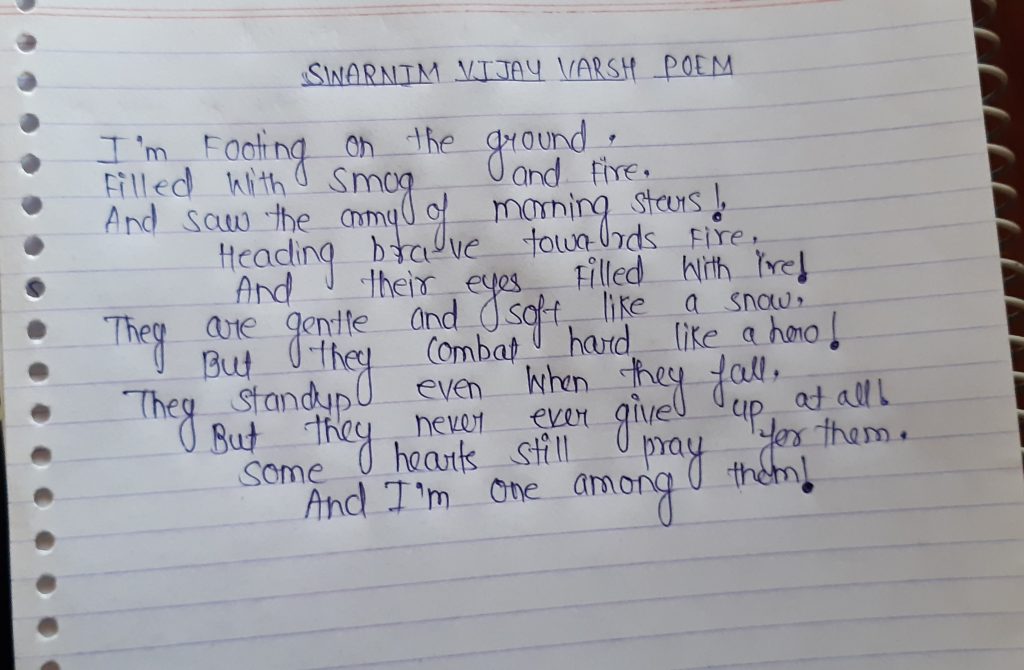 SWARNIM VIJAY VARSH POEM
I'm Footing on the ground,
Filled With smog and Fire.
And saw the army of morning stars!
Heading brave towards Fire,
And their eyes Filled With ire!
They are gentle and soft like a snow,
But they combat hard like a hero!
They standup even When they fall,
But they never ever give up at all!
Some hearts still pray for them.
And I'm one among them!